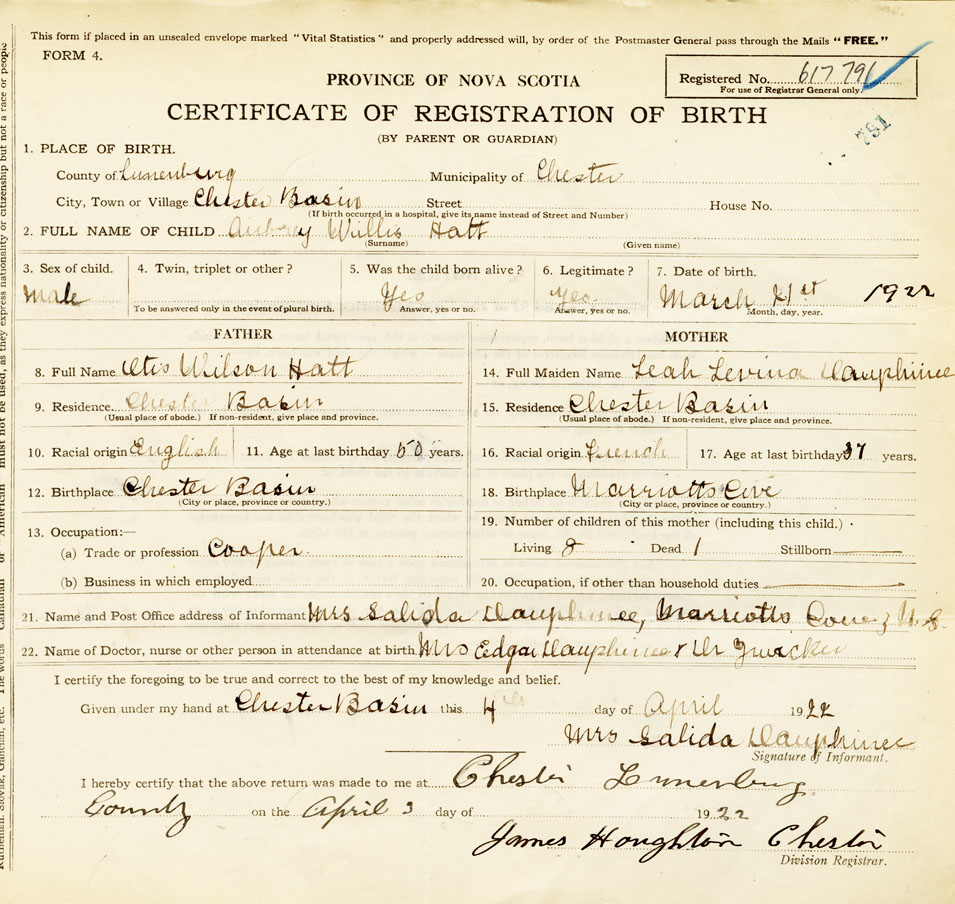 This form if placed in an unsealed envelope marked "Vital Statistics" and properly addressed will, by order of the Postmaster General pass through the Mails "FREE."
FORM 4.
PROVINCE OF NOVA SCOTIA
Registered No. 617 791
For use of Registrar General only.
CERTIFICATE OF REGISTRATION OF BIRTH
781
(BY PARENT OR GUARDIAN)
1. PLACE OF BIRTH.
County of Lunenburg Municipality of Chester
City, Town or Village Chester Basin Street House No.
(If birth occurred in a hospital, give its name instead of Street and Number)
2. FULL NAME OF CHILD Aubrey Willis Hatt
(Surname) (Given name)
3. Sex of child. 4. Twin, triplet or other? 5. Was the child born alive? 6. Legitimate? 7. Date of birth.
Male Yes Yes. March 21st 1922
To be answered only in the event of plural birth. Answer, yes or no. Answer, yes or no. Month, day, year.
FATHER MOTHER
8. Full Name Otis Wilson Hatt 14. Full Maiden Name Leah Levina Dauphinee
9. Residence Chester Basin 15. Residence Chester Basin
(Usual place of abode.) If non-resident, give place and province. (Usual place of abode.) If non-resident, give place and province.
10. Racial origin English 11. Age at last birthday 50 years. 16. Racial origin French 17. Age at last birthday 37 years.
12. Birthplace Chester Basin 18. Birthplace Marriotts Cove
(City or place, province or country.) (City or place, province or country.)
13. Occupation:— 19. Number of children of this mother (including this child.)
(a) Trade or profession Cooper Living 8 Dead 1 Stillborn
(b) Business in which employed 20. Occupation, if other than household duties
21. Name and Post Office address of Informant Mrs Salida Dauphinee, Marriotts Cove, N.S.
22. Name of Doctor, nurse or other person in attendance at birth. Mrs Edgar Dauphinee & Dr Zwicker
I certify the foregoing to be true and correct to the best of my knowledge and belief.
Given under my hand at Chester Basin this 4th day of April 1922
Mrs Salida Dauphinee
Signature of Informant.
I hereby certify that the above return was made to me at Chester Lunenburg
County on the April 3 day of 1922
James Houghton Chester
Division Registrar.